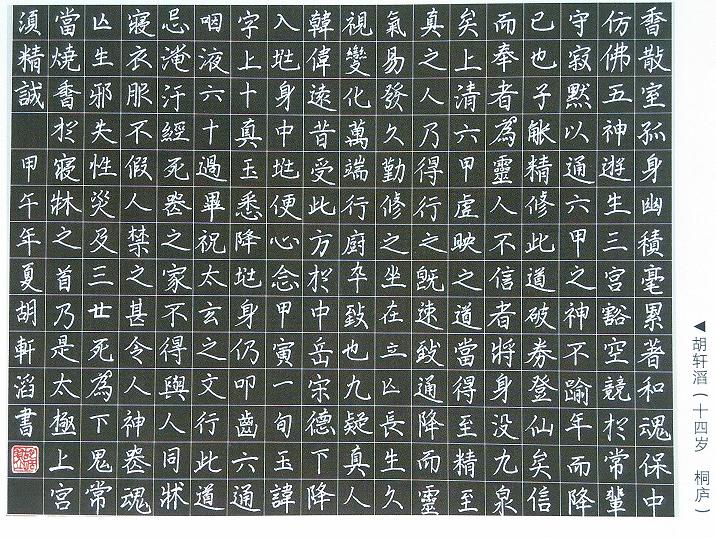 香散室孤身幽積毫累著和魂保中
仿佛五神遊生三宮豁空競於常輩
守寂默以通六甲之神不踰年而降
已也子能精修此道破券登仙矣信
而奉者為靈人不信者將身没九泉
矣上清六甲虛映之道當得至精至
真之人乃得行之既速致通降而靈
氣易發久勤修之坐在立亡長生久
視變化萬端行廚卒致也九疑真人
韓偉遠昔受此方於中岳宋德下降
入兆身中兆便心念甲寅一旬玉諱
字上十真玉悉降兆身仍叩齒六通
咽液六十過畢祝太玄之文行此道
忌淹汙經死喪之家不得與人同牀
寢衣服不假人禁之甚令人神喪魂
亡生邪失性災及三世死為下鬼常
當燒香於寢牀之首乃是太極上宮
須精誠 甲午年夏胡軒滔書
◀胡轩滔(十四岁 桐庐)